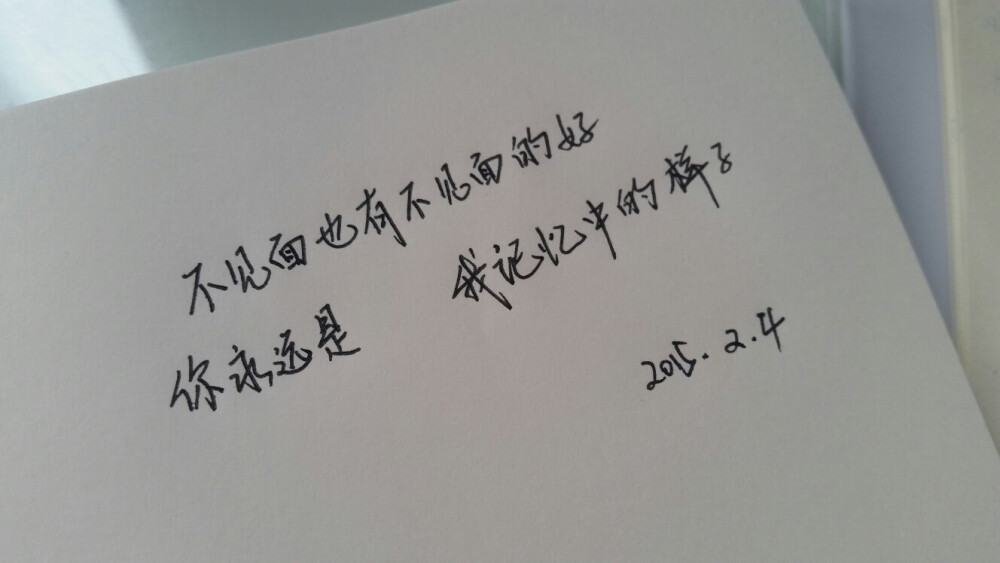 不见面也有不见面的好
你永远是 我记忆中的样子
2015.2.4